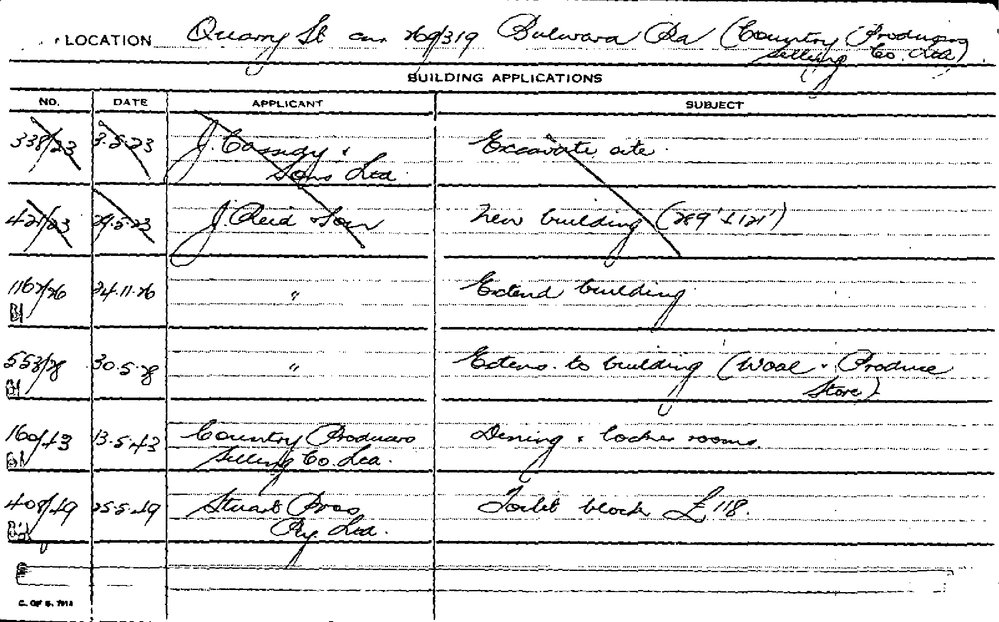 LOCATION Quarry St cnr 269/319 Bulwara Rd (Country Producers
Selling Co. Ltd)
BUILDING APPLICATIONS
NO. DATE APPLICANT SUBJECT
338/23 3.5.23 J. Cassidy & Excavate site.
Sons Ltd.
421/23 29.5.23 J. Reid & Son New building (289' x 121')
1167/26 24.11.26 " Extend building
553/28 30.5.28 " Extens. to building (Wool & Produce
Store)
160/43 13.5.43 Country Producers Dining & locker rooms.
Selling Co. Ltd.
408/49 25.5.49 Stuart Bros Toilet block £118.
Pty. Ltd.
C. OF S.